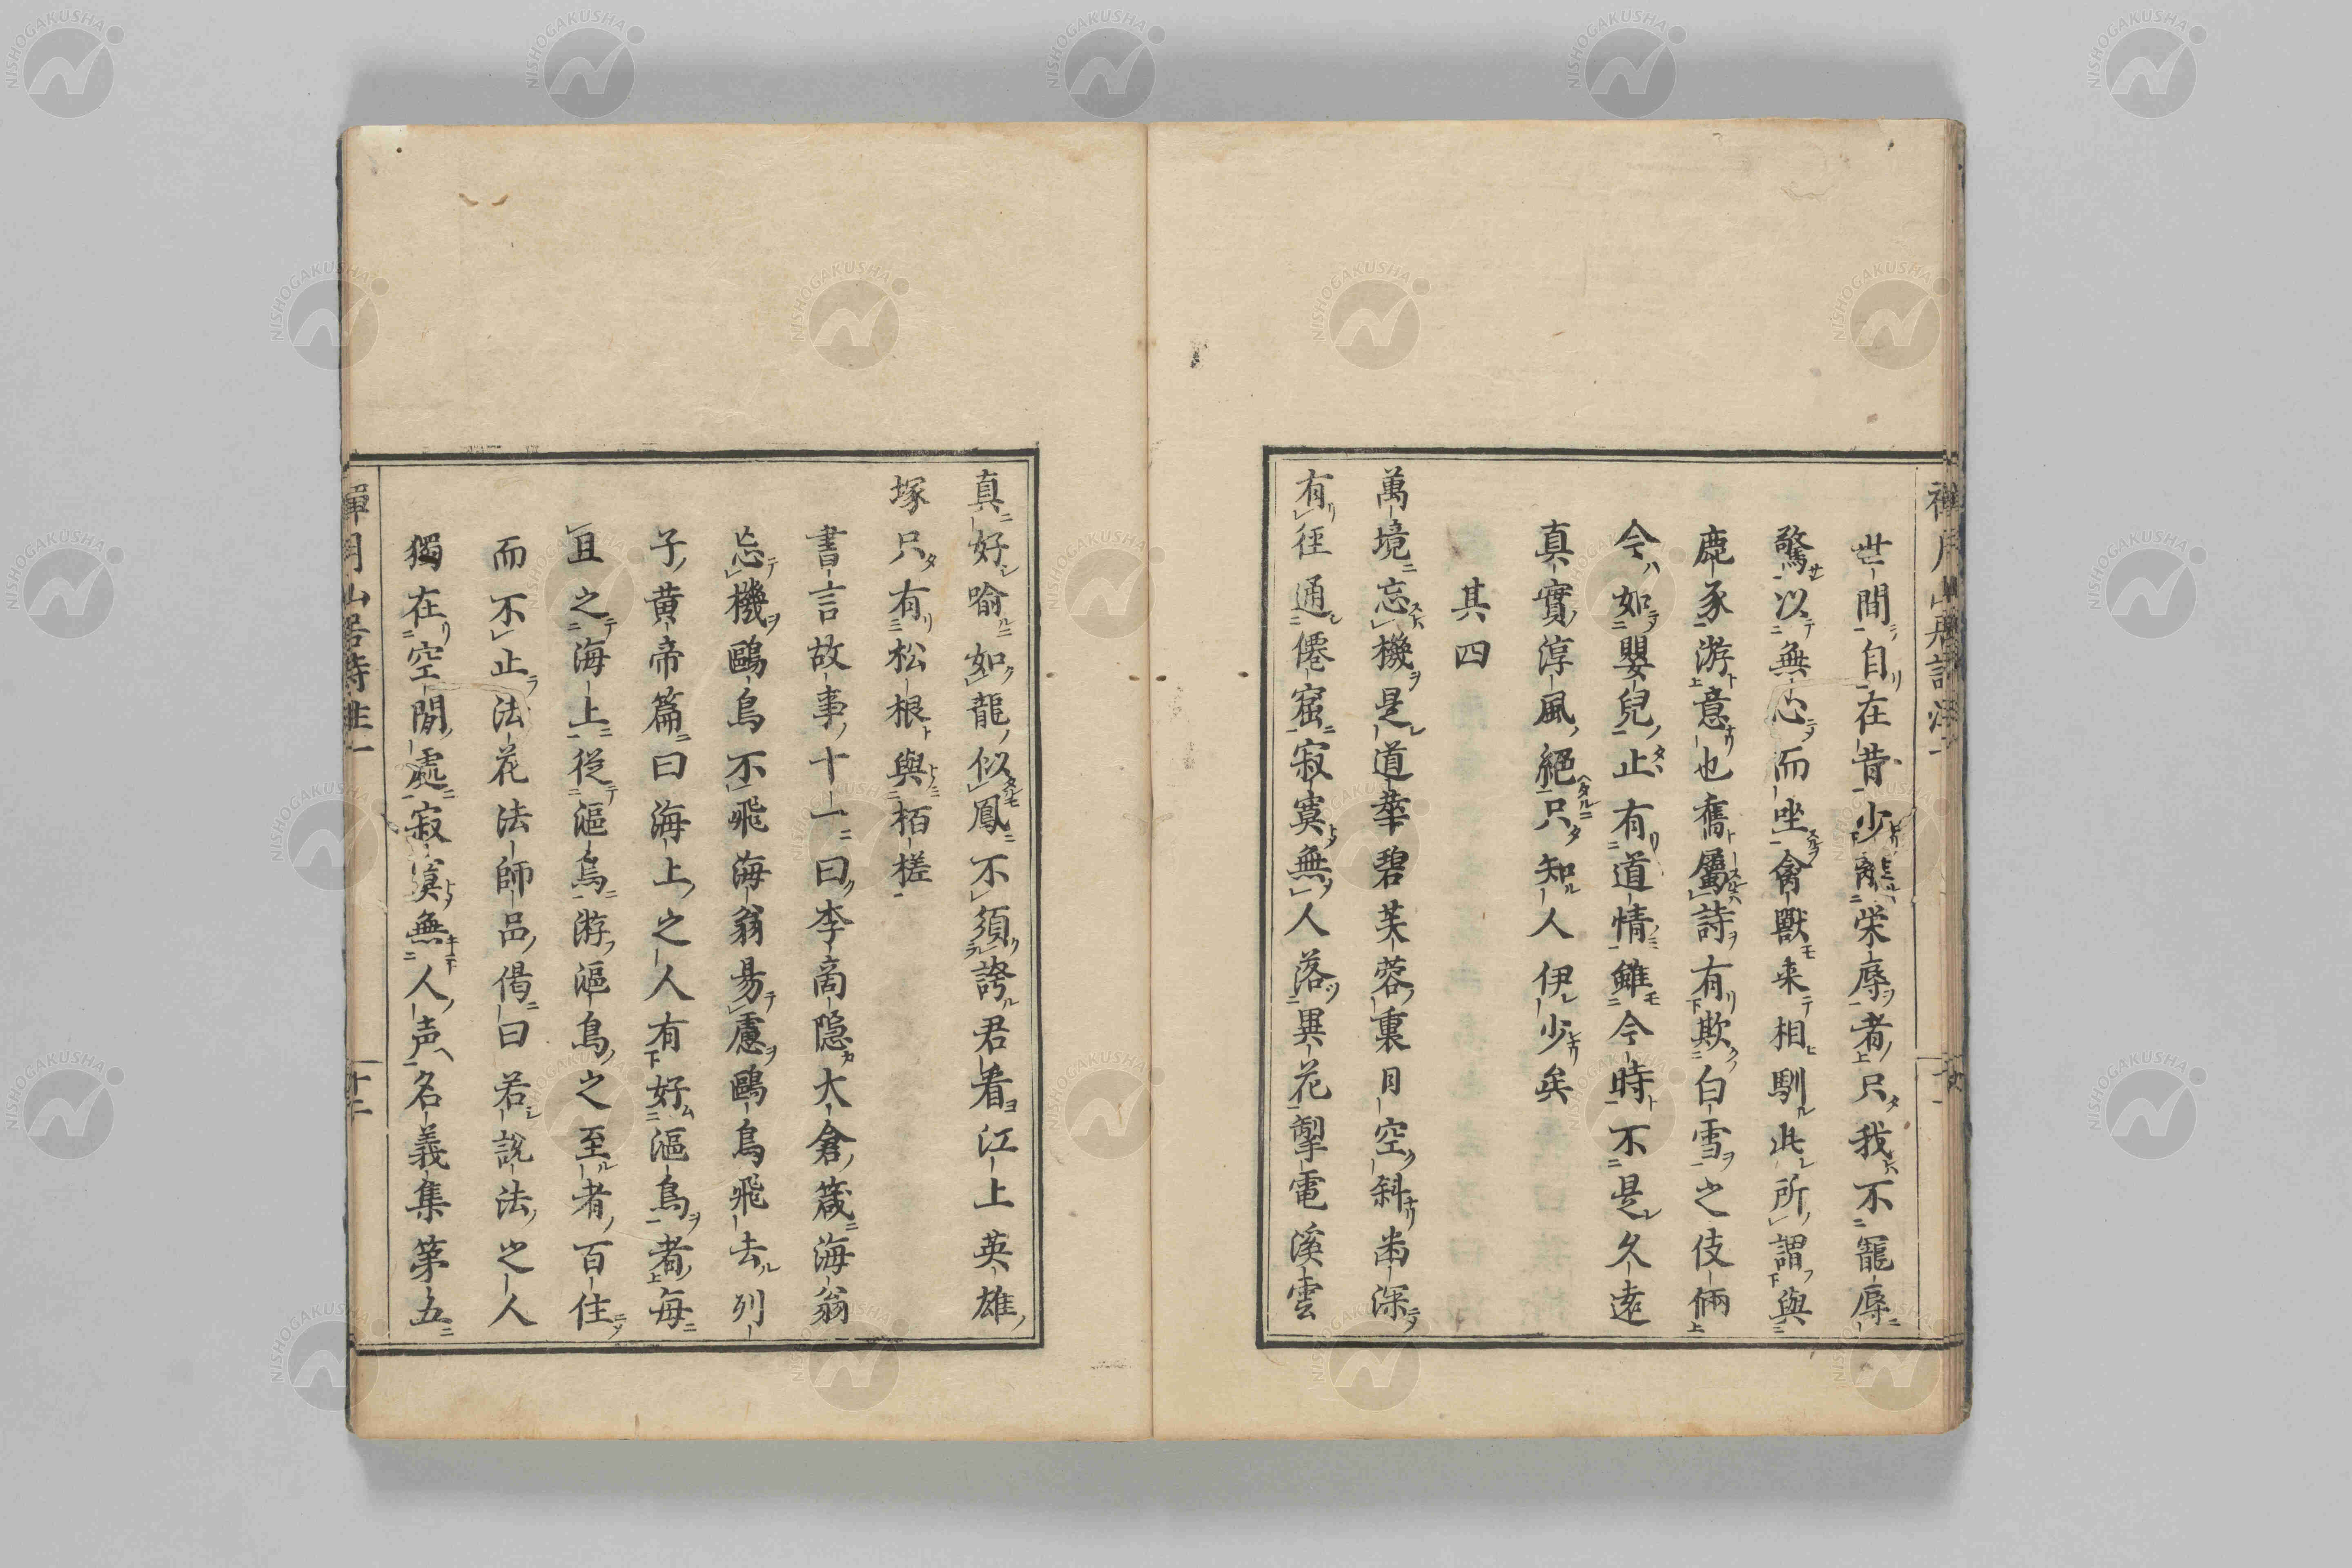 世間自在昔少能栄辱者只我不寵辱
驚以無心而坐禽獸来相馴此所謂與
鹿豕游意也舊屬詩有欺白雪之伎倆
今如嬰兒止有道情雖今時不是久遠
真實淳風絕只知人伊少矣
其四
萬境忘機是道華碧芙蓉裏月空斜畨深
有徑通僊窟寂寞無人落異花掣電溪雲
真好喻如龍似鳳不須誇君看江上英雄
塚只有松根與栢槎
書言故事十一曰李商隠大倉箴海翁
忘機鷗鳥不飛海翁易慮鷗鳥飛去列
子黄帝篇曰海上之人有好漚鳥者毎
且之海上從漚鳥游漚鳥之至者百住
而不止法花法師品偈曰若說法之人
獨在空閒處寂漠無人声名義集第五
禪月山居詩註一
十二